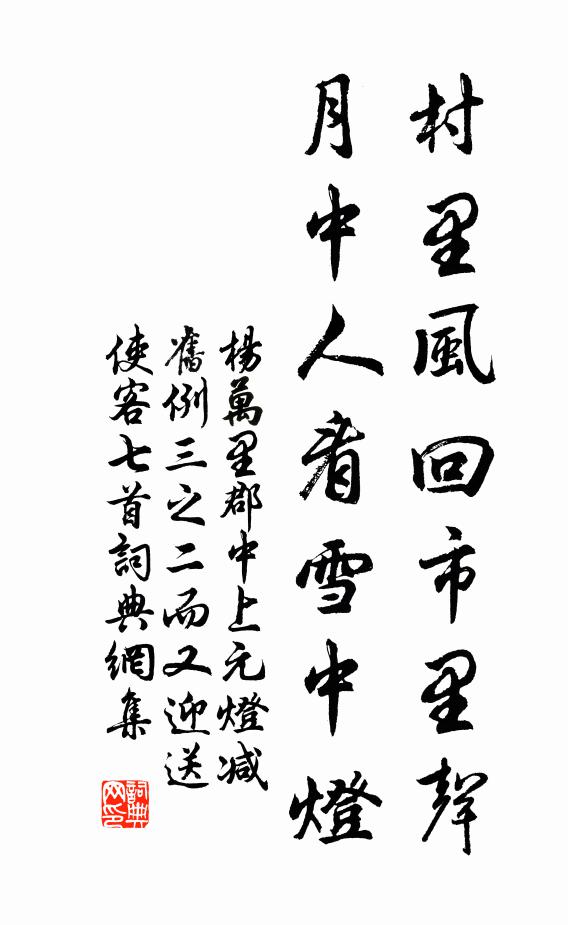 村里風回市里聲
月中人看雪中燈
楊萬里郡中上元燈减
舊例三之二而又迎送
使客七首詞典網集
詞典
网印